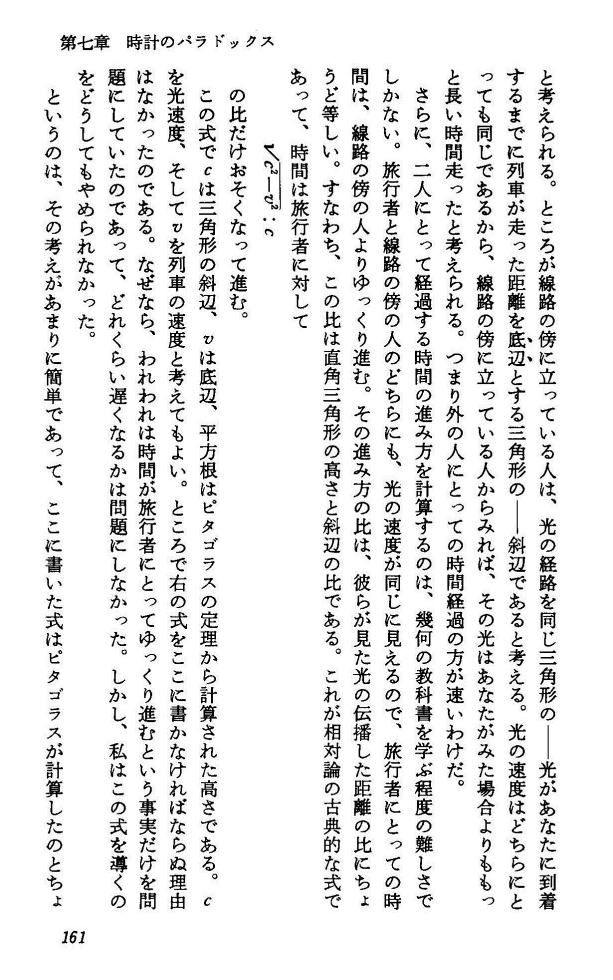 第七章　時計のパラドックス
と考えられる。ところが線路の傍に立っている人は、光の経路を同じ三角形の――光があなたに到着
するまでに列車が走った距離を底辺とする三角形の――斜辺であると考える。光の速度はどちらにと
っても同じであるから、線路の傍に立っている人からみれば、その光はあなたがみた場合よりももっ
と長い時間走ったと考えられる。つまり外の人にとっての時間経過の方が速いわけだ。
さらに、二人にとって経過する時間の進み方を計算するのは、幾何の教科書を学ぶ程度の難しさで
しかない。旅行者と線路の傍の人のどちらにも、光の速度が同じに見えるので、旅行者にとっての時
間は、線路の傍の人よりゆっくり進む。その進み方の比は、彼らが見た光の伝播した距離の比にちょ
うど等しい。すなわち、この比は直角三角形の高さと斜辺の比である。これが相対論の古典的な式で
あって、時間は旅行者に対して
√c²－v² : c
の比だけおそくなって進む。
この式でcは三角形の斜辺、vは底辺、平方根はピタゴラスの定理から計算された高さである。c
を光速度、そしてvを列車の速度と考えてもよい。ところで右の式をここに書かなければならぬ理由
はなかったのである。なぜなら、われわれは時間が旅行者にとってゆっくり進むという事実だけを問
題にしていたのであって、どれくらい遅くなるかは問題にしなかった。しかし、私はこの式を導くの
をどうしてもやめられなかった。
というのは、その考えがあまりに簡単であって、ここに書いた式はピタゴラスが計算したのとちょ
161